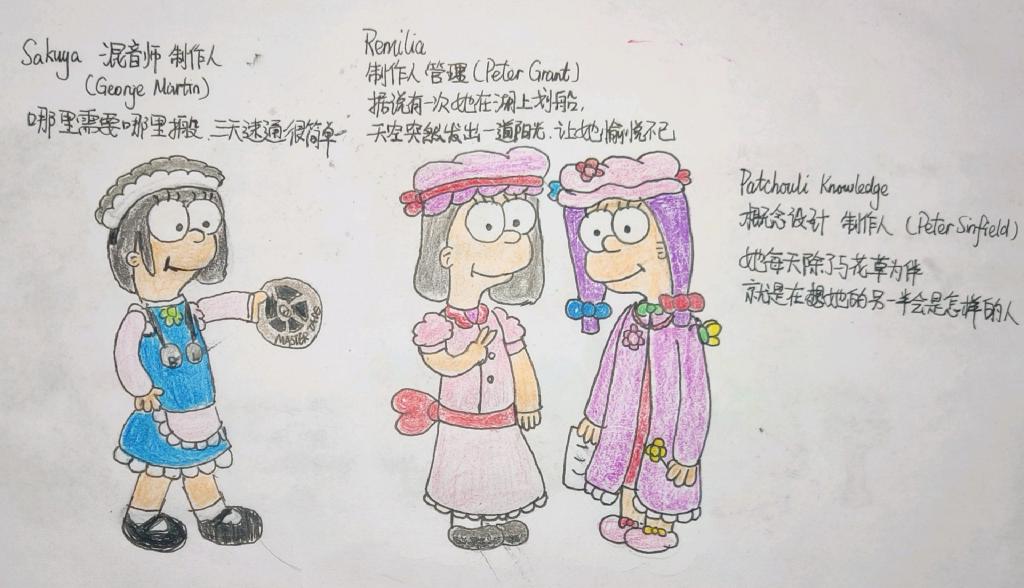 Sakuya 混音师 制作人
(George Martin)
哪里需要哪里搬,三天速通很简单
Remilia
制作人 管理 (Peter Grant)
据说有一次她在湖上划船,
天空突然发出一道阳光,让她愉悦不已
Patchouli Knowledge
概念设计 制作人 (Peter Sinfield)
她每天除了与花草为伴
就是在想她的另一半会是怎样的人
MASTER TAPE